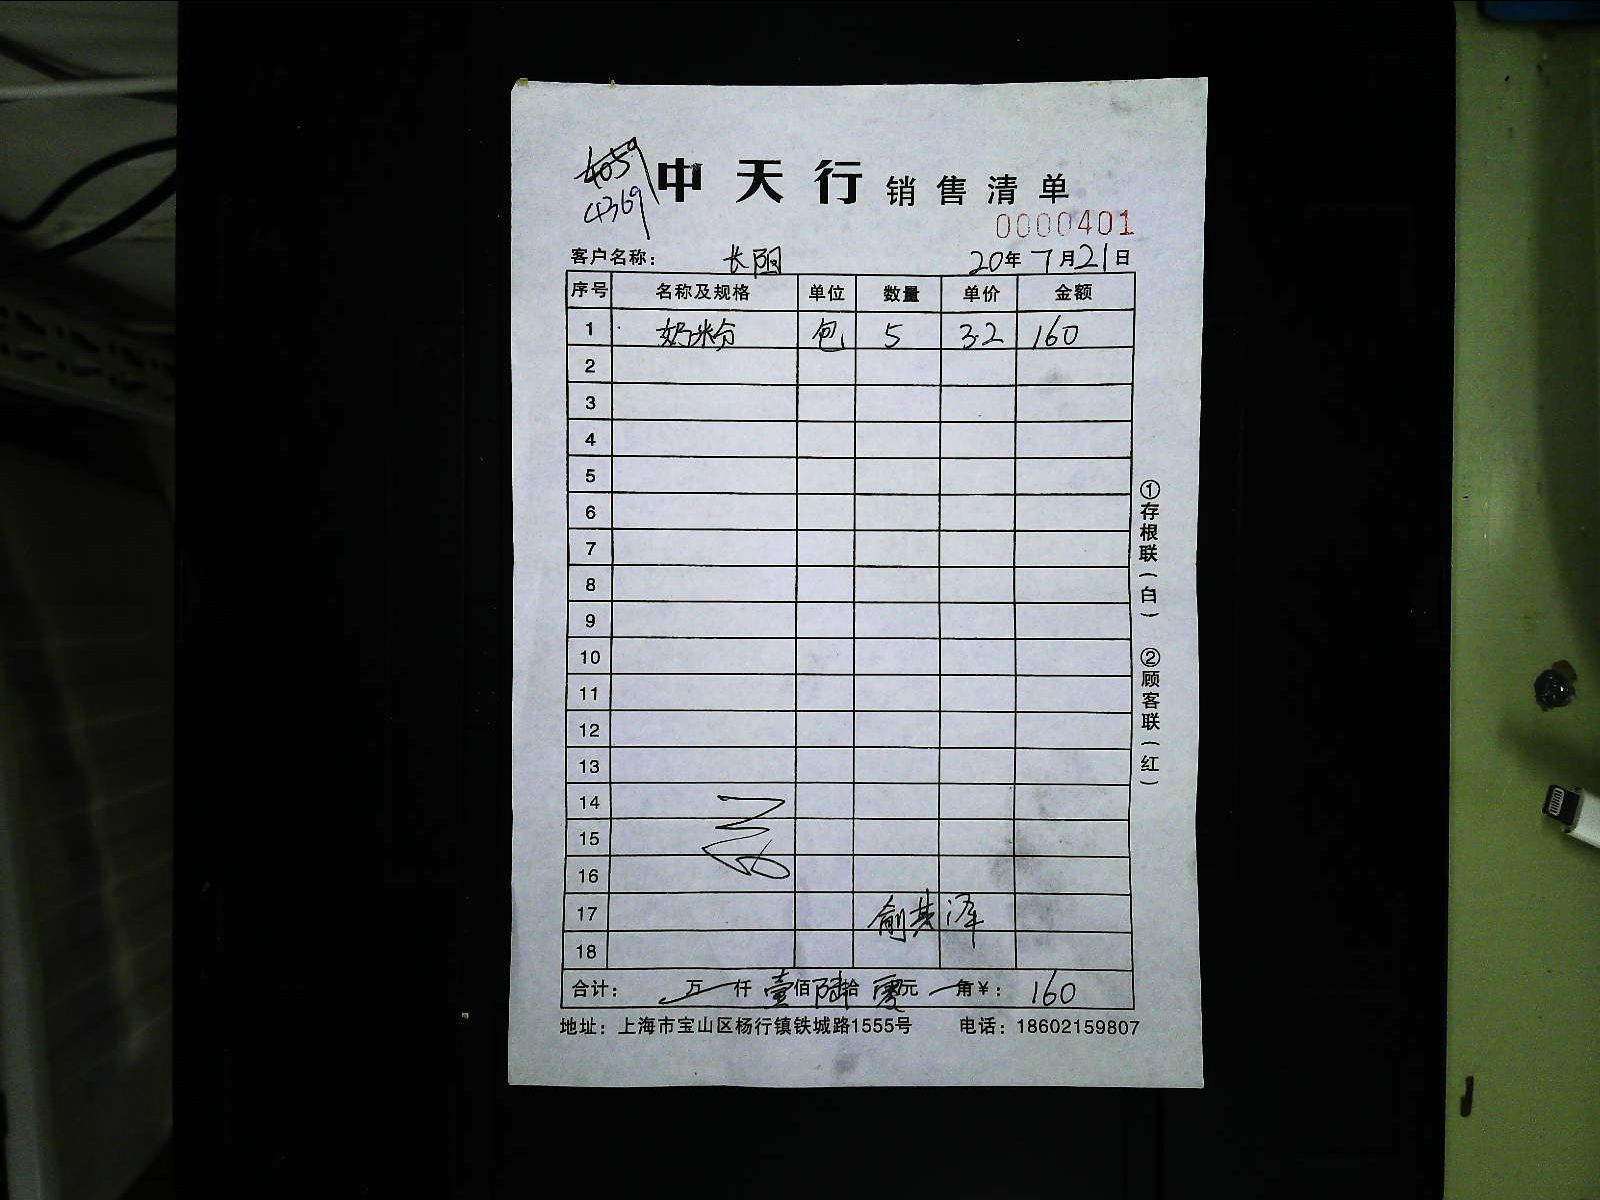 4059
4369
中天行 销售清单
0000401
客户名称: 长阳 20年7月21日
序号 名称及规格 单位 数量 单价 金额
1 奶米分 包 5 32 160
2
3
4
5
6
7
8
9
10
11
12
13
14
15
16
17
18
合计: 万 仟 壹佰 陆拾 零元 角¥: 160
地址: 上海市宝山区杨行镇铁城路1555号 电话: 18602159807
①存根联(白) ②顾客联(红)